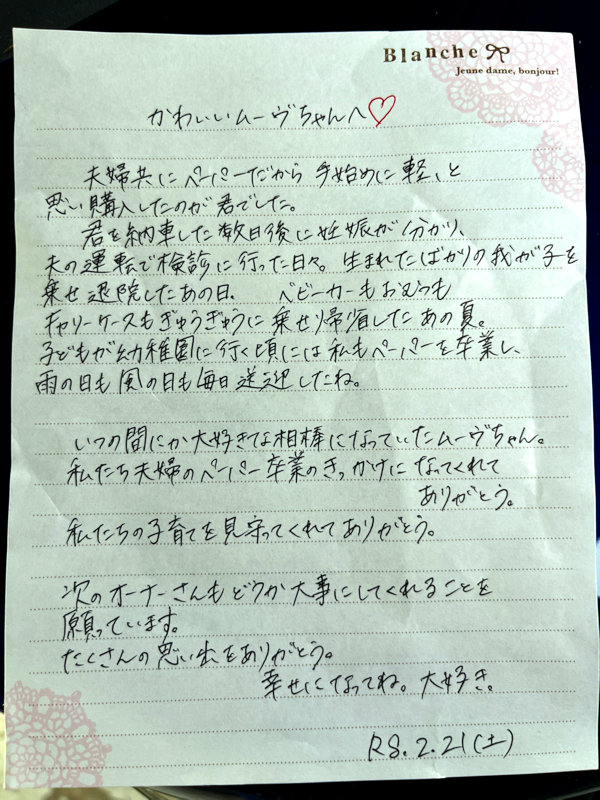 Blanche
Jeune dame, bonjour!
かわいいムーヴちゃんへ♡
夫婦共にペーパーだから 手始めに軽、と
思い購入したのが君でした。
君を納車した数日後に妊娠が分かり、
夫の運転で検診に行った日々。生まれたばかりの我が子を
乗せ退院したあの日。 ベビーカーもおむつも
キャリーケースもぎゅうぎゅうに乗せ帰省したあの夏。
子どもが幼稚園に行く頃には私もペーパーを卒業し、
雨の日も風の日も毎日送迎したね。
いつの間にか大好きな相棒になっていたムーヴちゃん。
私たち夫婦のペーパー卒業のきっかけになってくれて
ありがとう。
私たちの子育てを見守ってくれてありがとう。
次のオーナーさんもどうか大事にしてくれることを
願っています。
たくさんの思い出をありがとう。
幸せになってね。大好き。
R8.2.21(土)